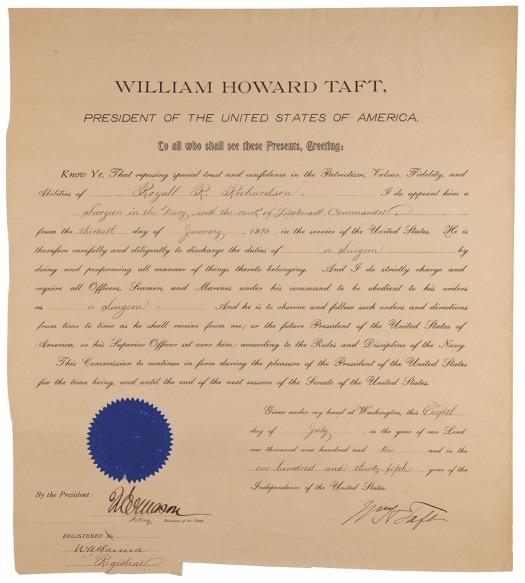 WILLIAM HOWARD TAFT,
PRESIDENT OF THE UNITED STATES OF AMERICA.
To all who shall see these Presents, Greeting:
Know Ye, That reposing special trust and confidence in the Patriotism, Valour, Fidelity, and
Abilities of Royall R. Richardson, I do appoint him a
Surgeon in the Navy, with the rank of Lieutenant Commander,
from the thirtieth day of January, 1910, in the service of the United States. He is
therefore carefully and diligently to discharge the duties of a Surgeon by
doing and performing all manner of things thereto belonging. And I do strictly charge and
require all Officers, Seamen, and Marines under his command to be obedient to his orders
as a Surgeon. And he is to observe and follow such orders and directions
from time to time as he shall receive from me; or the future President of the United States of
America, or his Superior Officer set over him; according to the Rules and Discipline of the Navy.
This Commission to continue in force during the pleasure of the President of the United States
for the time being, and until the end of the next session of the Senate of the United States.
Given under my hand at Washington, this Eighth
day of July, in the year of our Lord
one thousand nine hundred and ten and in the
one hundred and thirty fifth year of the
Independence of the United States.
By the President:
Acting Secretary of the Navy
Wm H Taft
REGISTERED No
Registrar